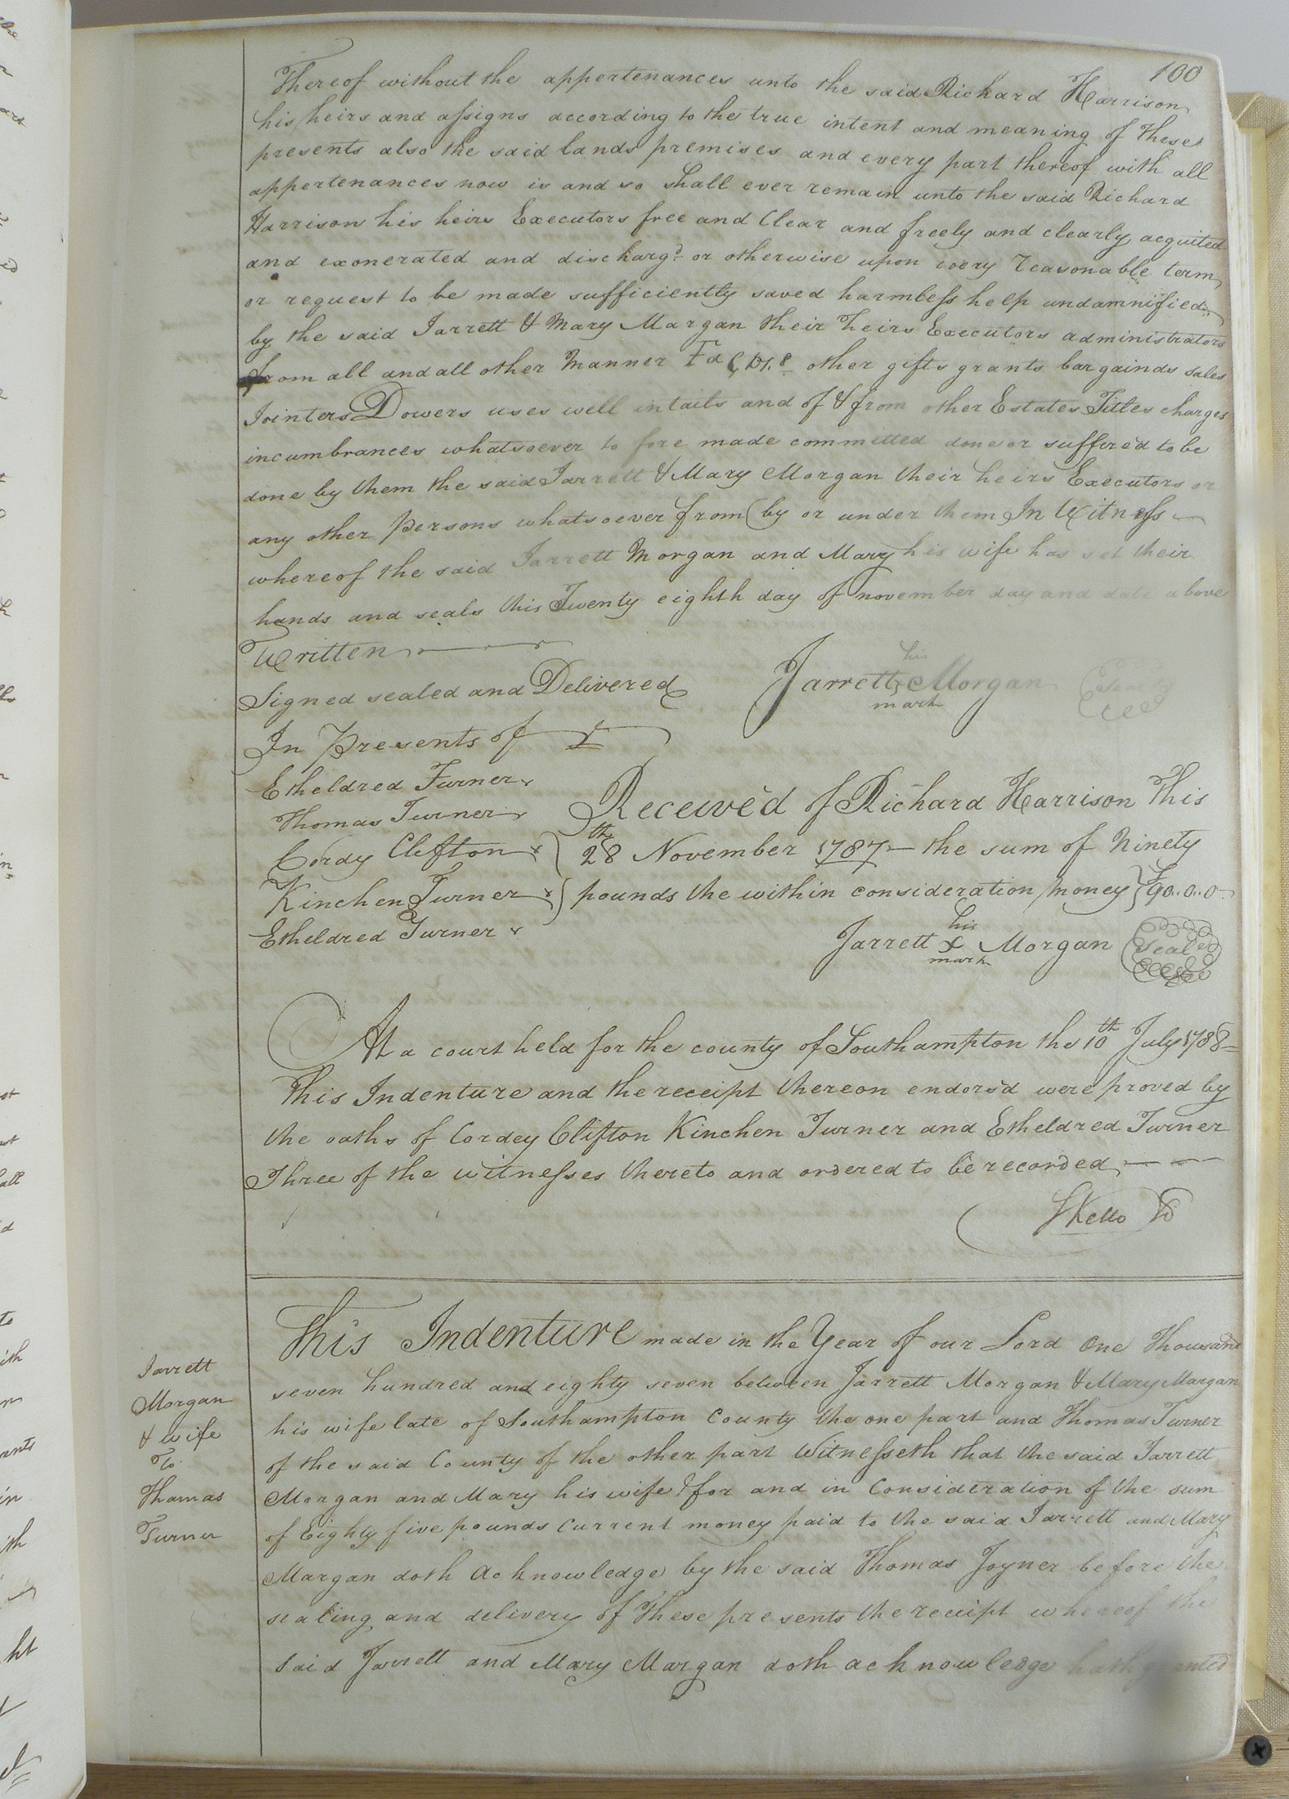 100
Thereof without the appertenances unto the said Richard Harrison
his heirs and assigns according to the true intent and meaning of these
presents also the said lands premises and every part thereof with all
appertenances now is and so shall ever remain unto the said Richard
Harrison his heirs Executors free and Clear and freely and clearly acquited
and exonerated and discharg'd or otherwise upon every reasonable term
or request to be made sufficiently saved harmless help undamnified
by the said Jarrett & Mary Morgan their heirs Executors administrators
from all and all other Manner other gifts grants bargainds sales
Jointers Dowers uses well intails and of & from other Estates Titles charges
incumbrances whatsoever to fore made committed done or suffered to be
done by them the said Jarrett & Mary Morgan their heirs Executors or
any other Persons whatsoever from by or under them In Witness
whereof the said Jarrett Morgan and Mary his wife has set their
hands and seals this Twenty eighth day of november day and date above
Written
Signed sealed and Delivered
his
Jarrett Morgan
mark
In Presents of
Etheldred Turner
Thomas Turner
Cordy Clefton
Kinchen Turner
Etheldred Turner
Received of Richard Harrison This
28th November 1787 the sum of Ninety
pounds the within consideration money £90.0.0
his
Jarrett x Morgan Seal
mark
At a court held for the county of Southampton the 10th July 1788
This Indenture and the receipt thereon endors'd were proved by
the oaths of Cordey Clifton Kinchen Turner and Etheldred Turner
Three of the witnesses thereto and ordered to be recorded
SKello
Jarrett
Morgan
& wife
To
Thomas
Turner
This Indenture made in the Year of our Lord One Thousand
seven hundred and eighty seven between Jarrett Morgan & Mary Morgan
his wife late of Southampton County the one part and Thomas Turner
of the said County of the other part Witnesseth that the said Jarrett
Morgan and Mary his wife for and in Consideration of the sum
of Eighty five pounds Current money paid to the said Jarrett and Mary
Margan doth acknowledge by the said Thomas Joyner before the
sealing and delivery of These presents the receipt whereof the
said Jarrett and Mary Margan doth acknowledge hath granted